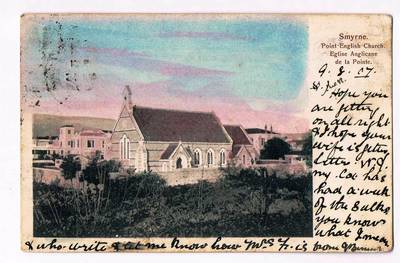 Smyrne.
Point English Church.
Eglise Anglicane
de la Pointe.
9. 8. 07.
Hope you
are getting
on all right
& I hope your
wife is getting
better
my Co. has
had a week
of the Sulks
you know
what I mean
& who write & let me know how Mrs Fr. is from